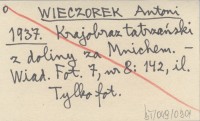 WIECZOREK Antoni
1937. Krajobraz tatrzański
z doliny za Mnichem. –
Wiad. Fot. 7, nr 8: 142, il.
Tylko fot.